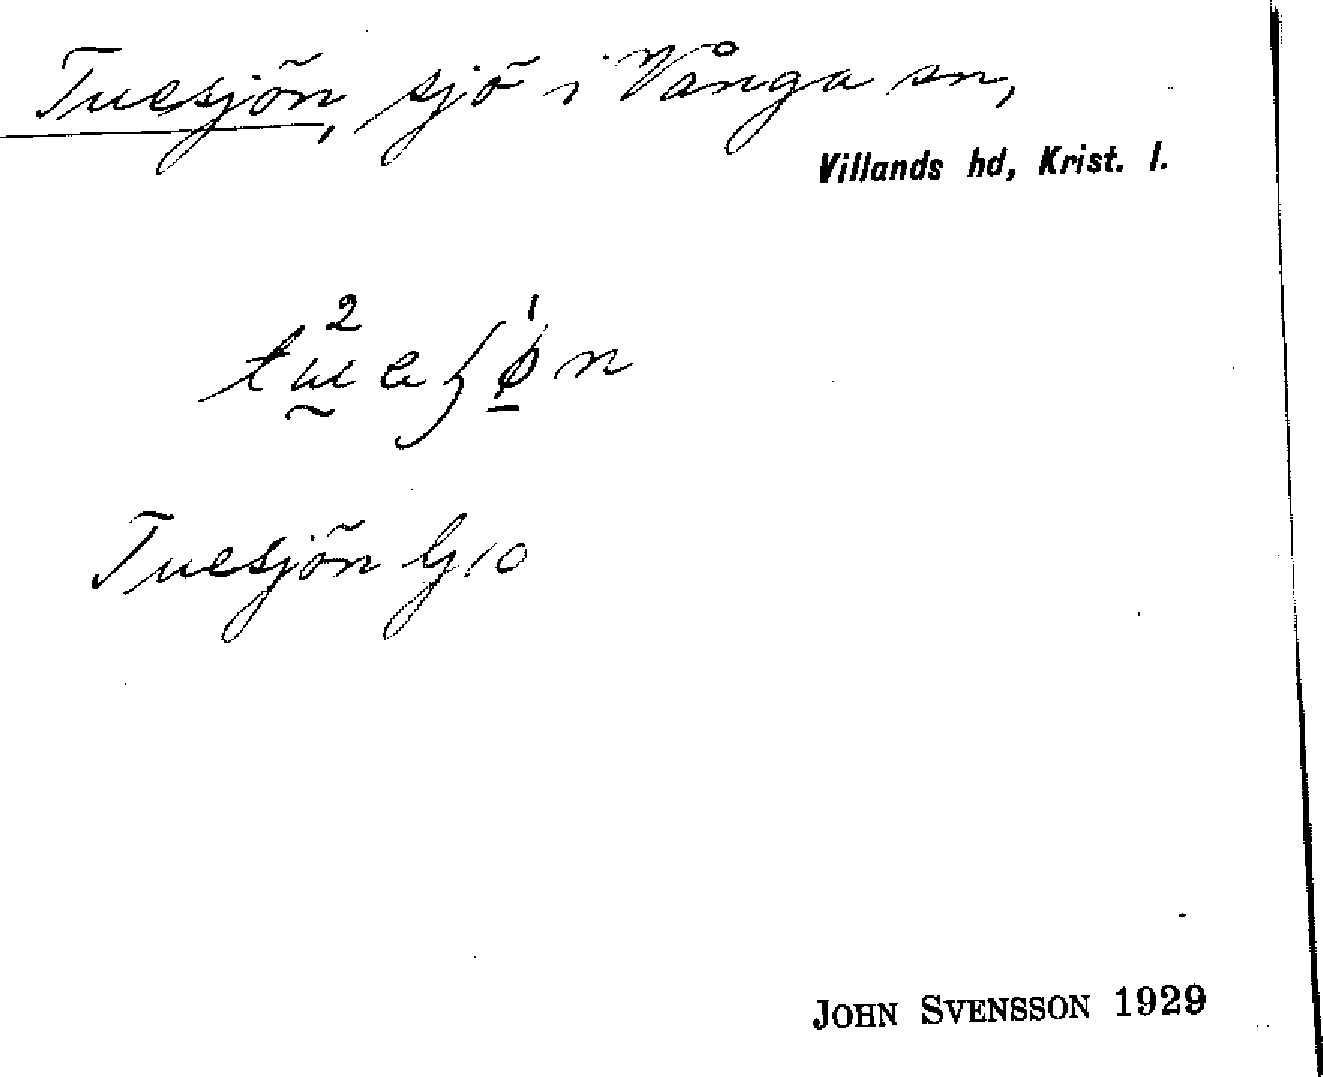 Tuesjön, sjö i Vånga sn,
Villands hd, Krist. l.
Tuesjön G10
JOHN SVENSSON 1929